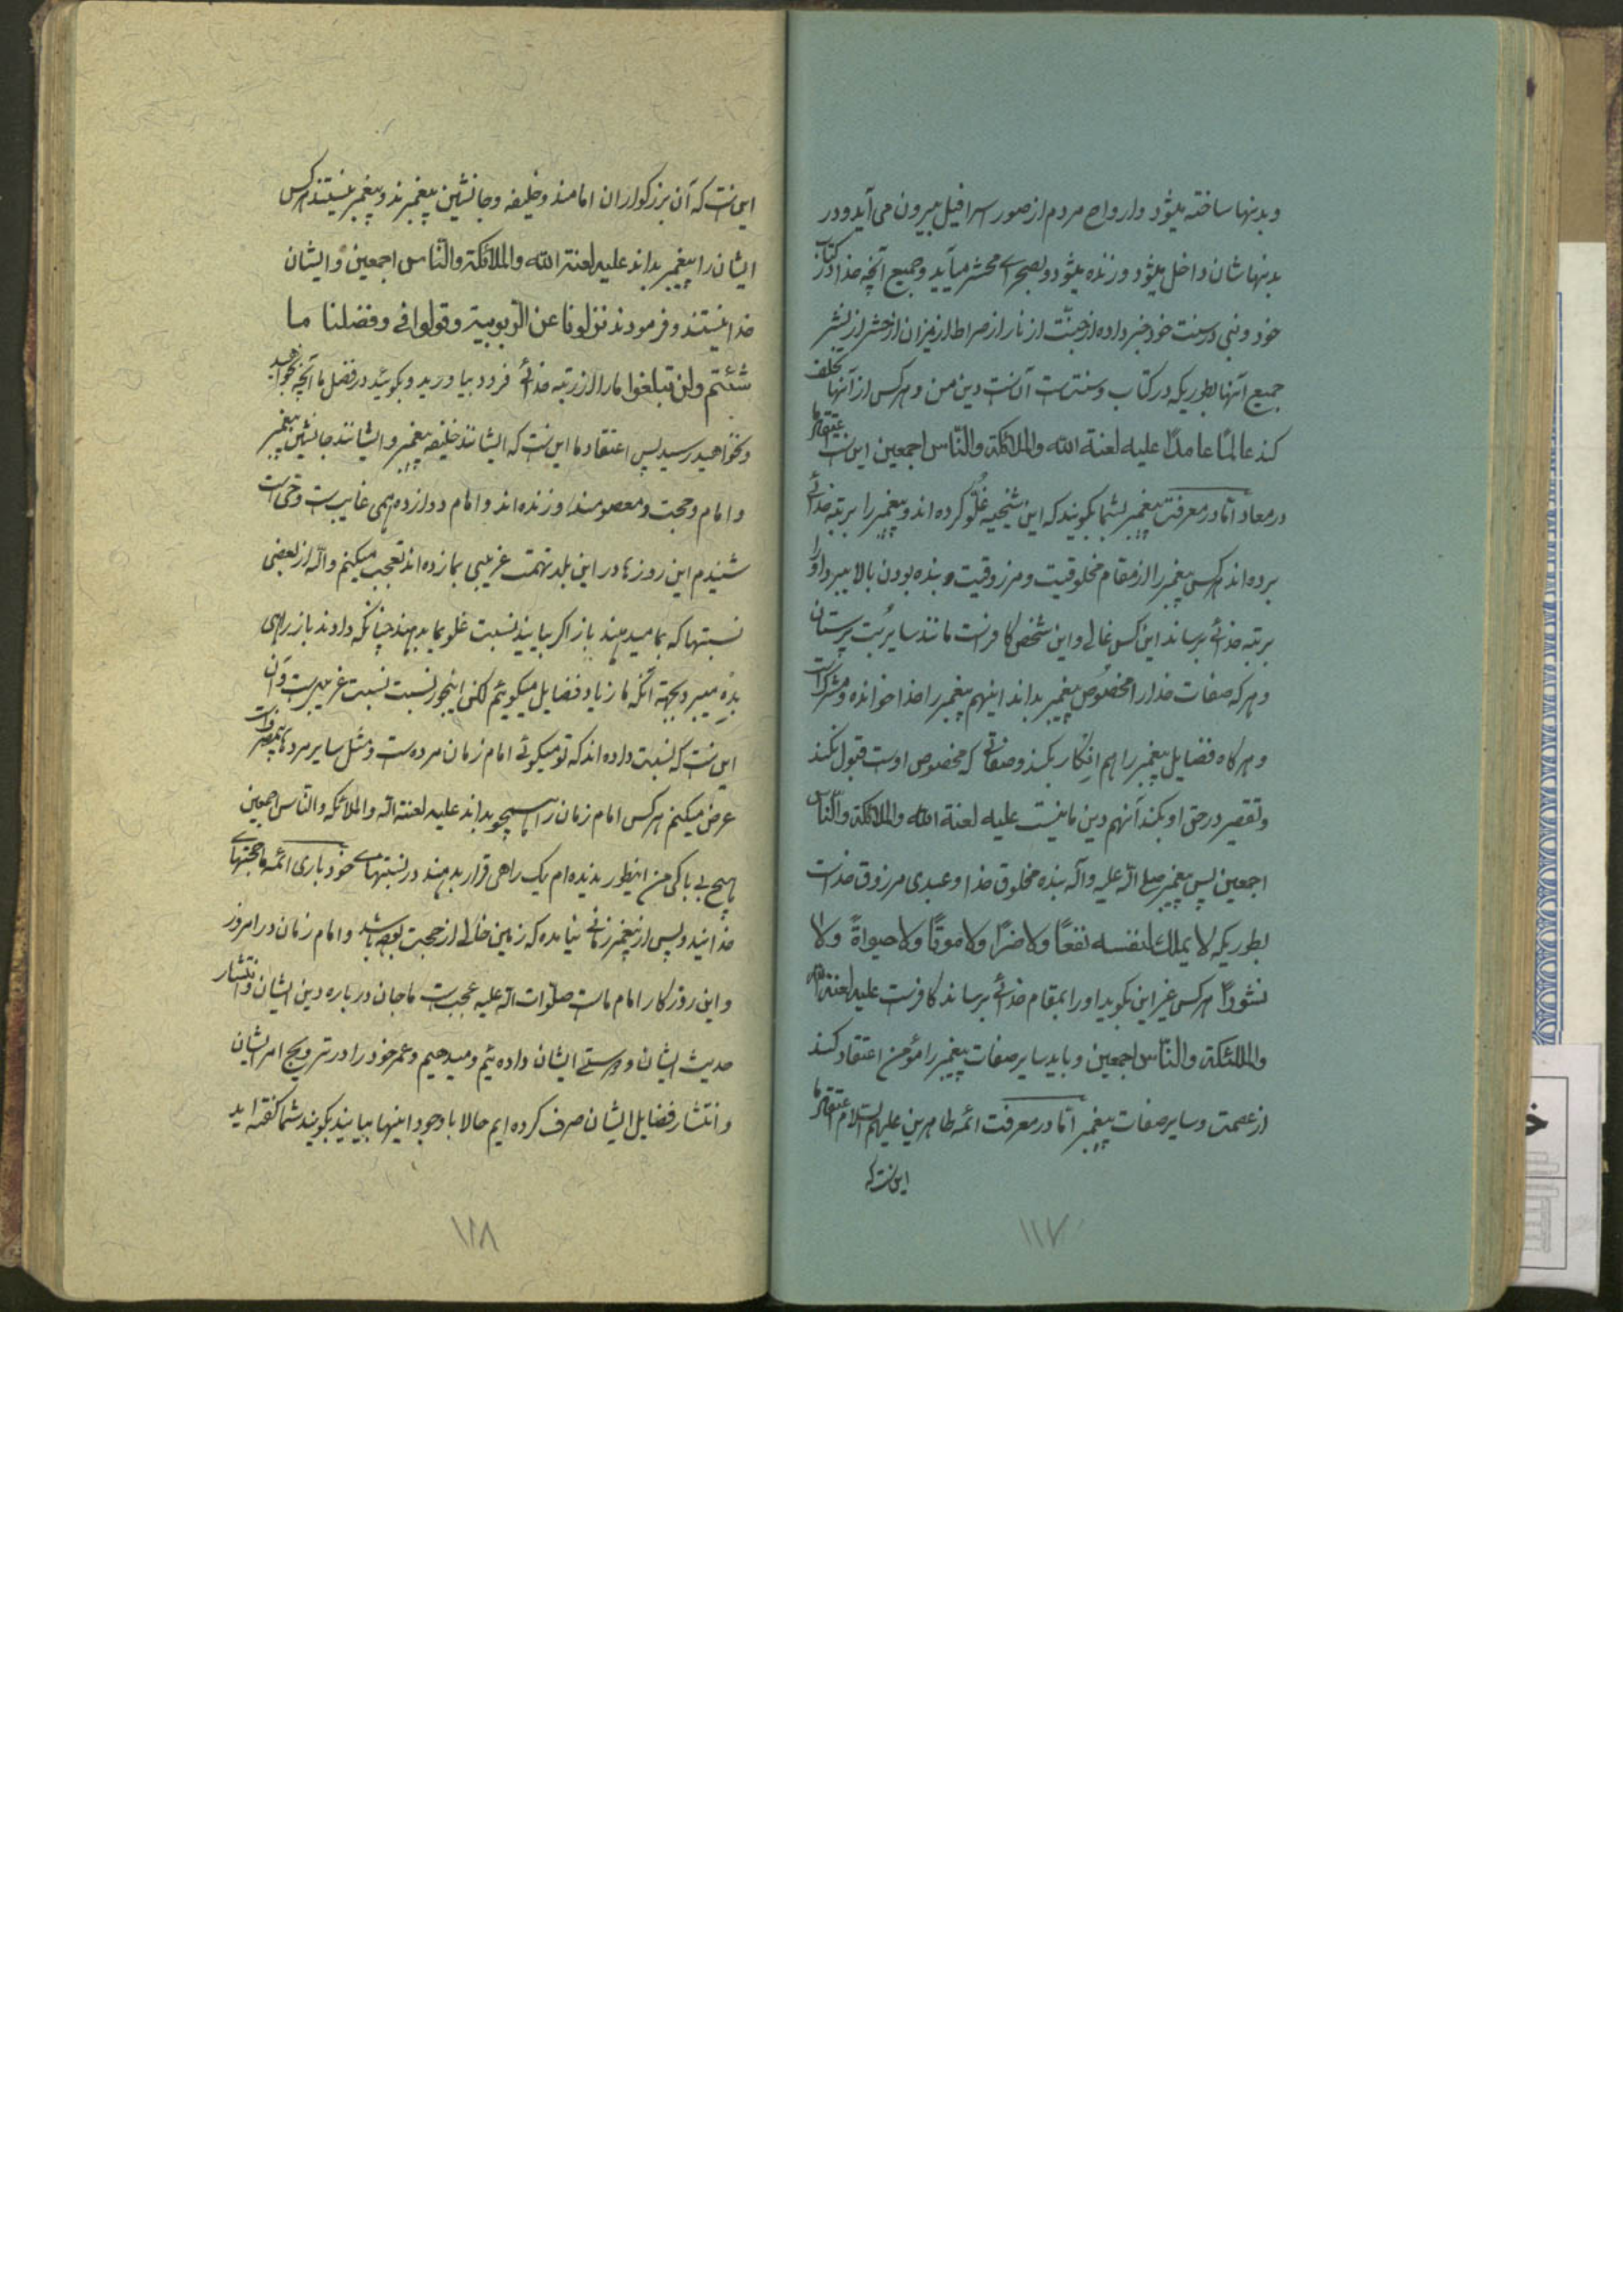 و بدنها ساخته میشود و ارواح مردم از صور اسرافیل بیرون می آید و در
بدنهاشان داخل میشود و زنده میشود و بصحرای محشر میآید و جمیع آنچه خدا در کتاب
خود و نبی در سنت خود خبر داده از جنّت از نار از صراط از میزان از حشر از نشر
جمیع آنها بطوریکه در کتاب و سنت است آن است دین من و هر کس از آنها تخلف
کند عالمًا عامدًا علیه لعنة الله والملائکة والنّاس اجمعین این است اعتقاد ما
در معاد امّا در معرفت پیغمبر بشما بگویند که این شیخیه غُلُوّ کرده اند و پیغمبر را برتبه خدائی
برده اند هر کس پیغمبر را از مقام مخلوقیت و مرزوقیت و بنده بودن بالا ببرد و او را
برتبه خدائی برساند این کس غالی و این شخص کافر است مانند سایر بُت پرستان
و هر که صفات خدا را مخصوص پیغمبر بداند اینهم پیغمبر را خدا خوانده و مشرک است
و هر گاه فضایل پیغمبر را هم انکار بکند و صفاتی که مخصوص اوست قبول نکند
و تقصیر در حق او بکند آنهم دین ما نیست علیه لعنة الله والملائکة والنّاس
اجمعین پس پیغمبر صلی الله علیه وآله بنده مخلوق خدا و عبدی مرزوق خداست
بطوریکه لا یملك لنفسه نفعًا ولا ضرًا ولا موتًا ولا حیوةً ولا
نشورًا هر کس غیر این بگوید او را بمقام خدائی برساند کافر است علیه لعنة الله
والملائکة والنّاس اجمعین و باید سایر صفات پیغمبر را مؤمن اعتقاد کند
از عصمت و سایر صفات پیغمبر امّا در معرفت ائمه طاهرین علیهم السلام اعتقاد ما
این است که
۱۱۷
این است که آن بزرگواران امامند و خلیفه و جانشین پیغمبرند و پیغمبر نیستند هر کس
ایشان را پیغمبر بداند علیه لعنة الله والملائکة والنّاس اجمعین و ایشان
خدا نیستند و فرمودند نزلونا عن الربوبیة وقولوا فی وفضلنا ما
شئتم ولن تبلغوا ما را از رتبه خدائی فرود بیاورید و بگوئید در فضل ما آنچه بخواهید
و نخواهید رسید پس اعتقاد ما این است که ایشانند خلیفه پیغمبر و ایشانند جانشین پیغمبر
و امام و حجت و معصومند و زنده اند و امام دوازدهمی غایب است و حی است
شنیدم این روزها در این بلد تهمت غریبی بما زده اند تعجب میکنم والله از بعضی
نسبتها که بما میدهند باز اگر بیایند نسبت غلو بما بدهند چنانکه دادند باز راهی
بدْه میبرد بجهة آنکه ما زیاد فضایل میگوئیم لکن اینجور نسبت نسبت غریبی است و آن
این است که نسبت داده اند که تو میگوئی امام زمان مرده است و مثل سایر مردهای
عرض میکنم هر کس امام زمان را همچو بداند علیه لعنة الله والملائکه والنّاس اجمعین
هیچ بی باکی من اینطور ندیده ام یک راهی قرار بدهند در نسبتهای خود باری ائمه ما حجتهای
خدایند و پس از پیغمبر زمانی نیامده که زمین خالی از حجت بوده باشد و امام زمان در امروز
و این روزگار امام ماست صلوات الله علیه عجب است ما جان در باره دین ایشان و انتشار
حدیث ایشان و دوستی ایشان داده ئیم و میدهیم و عمر خود را در ترویج امر ایشان
و انتشار فضایل ایشان صرف کرده ایم حالا با وجود اینها بیایند بگویند شما گفته اید
۱۱۸